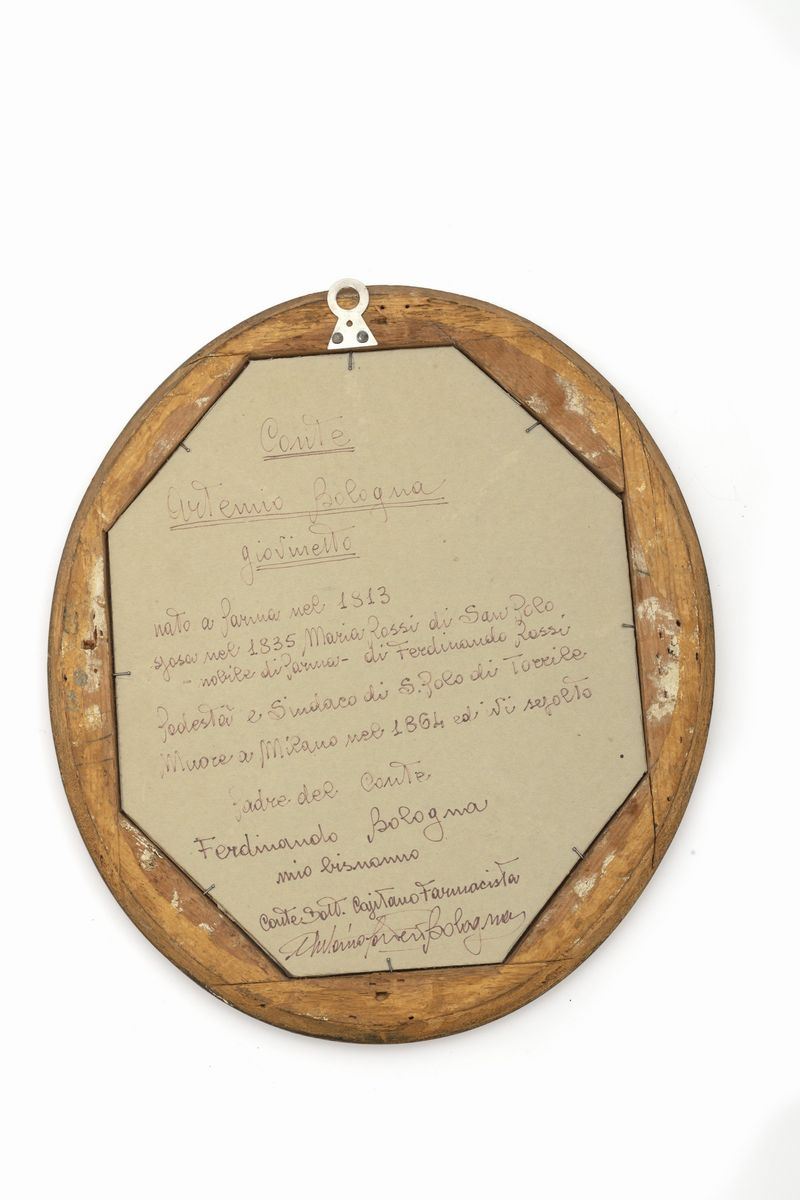 Conte
Artemio Bologna
giovinetto
nato a Parma nel 1813
sposa nel 1835 Maria Rossi di San Polo
- nobile di Parma - di Ferdinando Rossi
Podestà e Sindaco di S. Polo di Torrile
Muore a Milano nel 1864 ed ivi sepolto
Padre del Conte
Ferdinando Bologna
mio bisnonno
Conte Dott. Cajetano Farmacista
Bologna